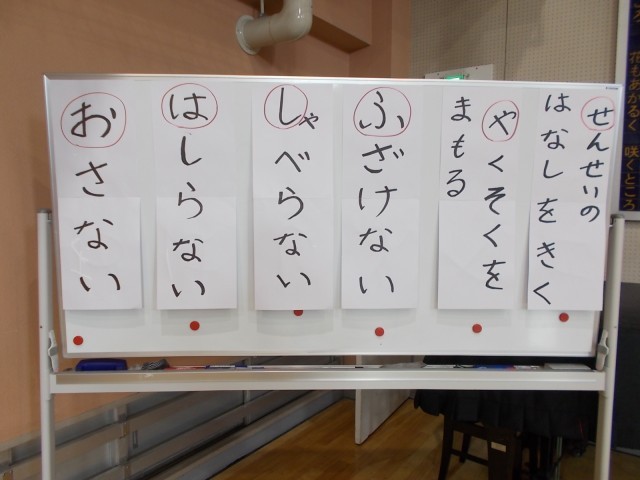 せんせいの
はなしをきく
やくそくを
まもる
ふざけない
しゃべらない
はしらない
おさない